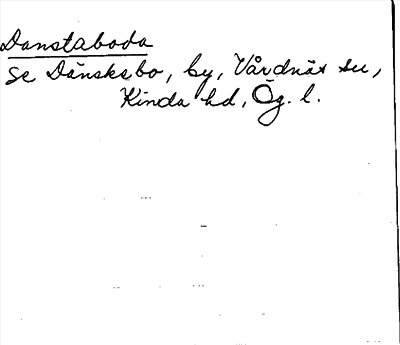 Danstaboda
Se Dänskebo, by, Vårdnäs sn,
Kinda hd, Ög. l.